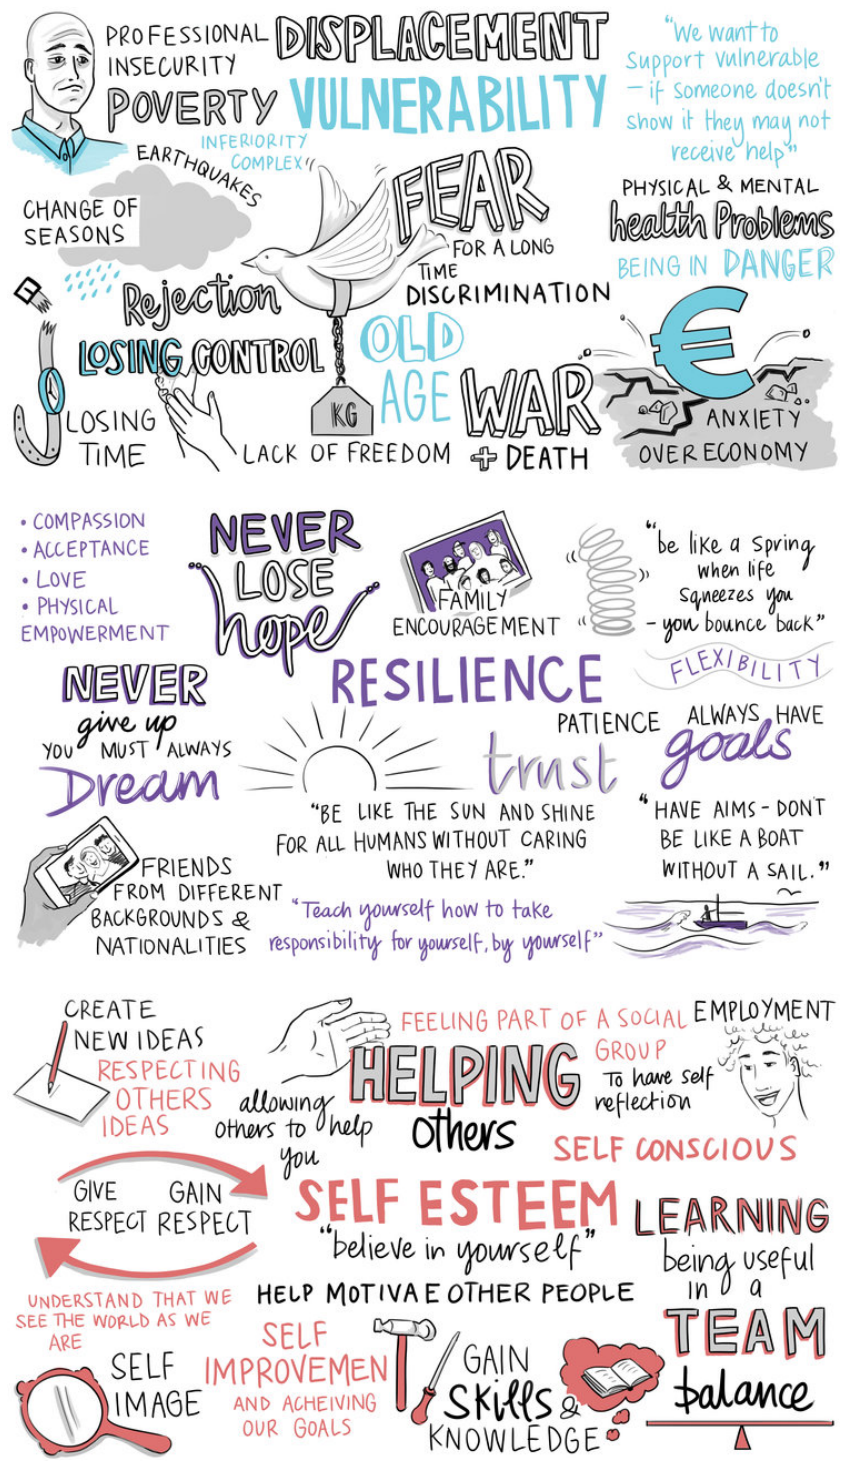 PROFESSIONAL
INSECURITY
DISPLACEMENT
POVERTY
VULNERABILITY
"We want to
Support vulnerable
– if someone doesn't
show it they may not
receive help"
INFERIORITY
COMPLEX"
EARTHQUAKES
CHANGE OF
SEASONS
FEAR
FOR A LONG
TIME
DISCRIMINATION
PHYSICAL & MENTAL
health Problems
BEING IN DANGER
Rejection
LOSING CONTROL
OLD
AGE
LOSING
TIME
KG
LACK OF FREEDOM
WAR
+ DEATH
€
ANXIETY
OVER ECONOMY
• COMPASSION
• ACCEPTANCE
• LOVE
• PHYSICAL
EMPOWERMENT
NEVER
LOSE
hope
FAMILY
ENCOURAGEMENT
"be like a Spring
when life
Sqneezes you
– you bounce back"
FLEXIBILITY
RESILIENCE
NEVER
give up
YOU MUST ALWAYS
Dream
PATIENCE
trust
ALWAYS HAVE
goals
"BE LIKE THE SUN AND SHINE
FOR ALL HUMANS WITHOUT CARING
WHO THEY ARE."
"HAVE AIMS – DON'T
BE LIKE A BOAT
WITHOUT A SAIL."
FRIENDS
FROM DIFFERENT
BACKGROUNDS &
NATIONALITIES
"Teach yourself how to take
responsibility for yourself, by yourself"
CREATE
NEW IDEAS
RESPECTING
OTHERS
IDEAS
FEELING PART OF A SOCIAL
GROUP
EMPLOYMENT
HELPING
others
allowing
others to help
you
To have self
reflection
SELF CONSCIOUS
GIVE
RESPECT
GAIN
RESPECT
SELF ESTEEM
"believe in yourself"
HELP MOTIVAE OTHER PEOPLE
LEARNING
being useful
in a
TEAM
balance
UNDERSTAND THAT WE
SEE THE WORLD AS WE
ARE
SELF
IMAGE
SELF
IMPROVEMEN
AND ACHEIVING
OUR GOALS
GAIN
Skills &
KNOWLEDGE